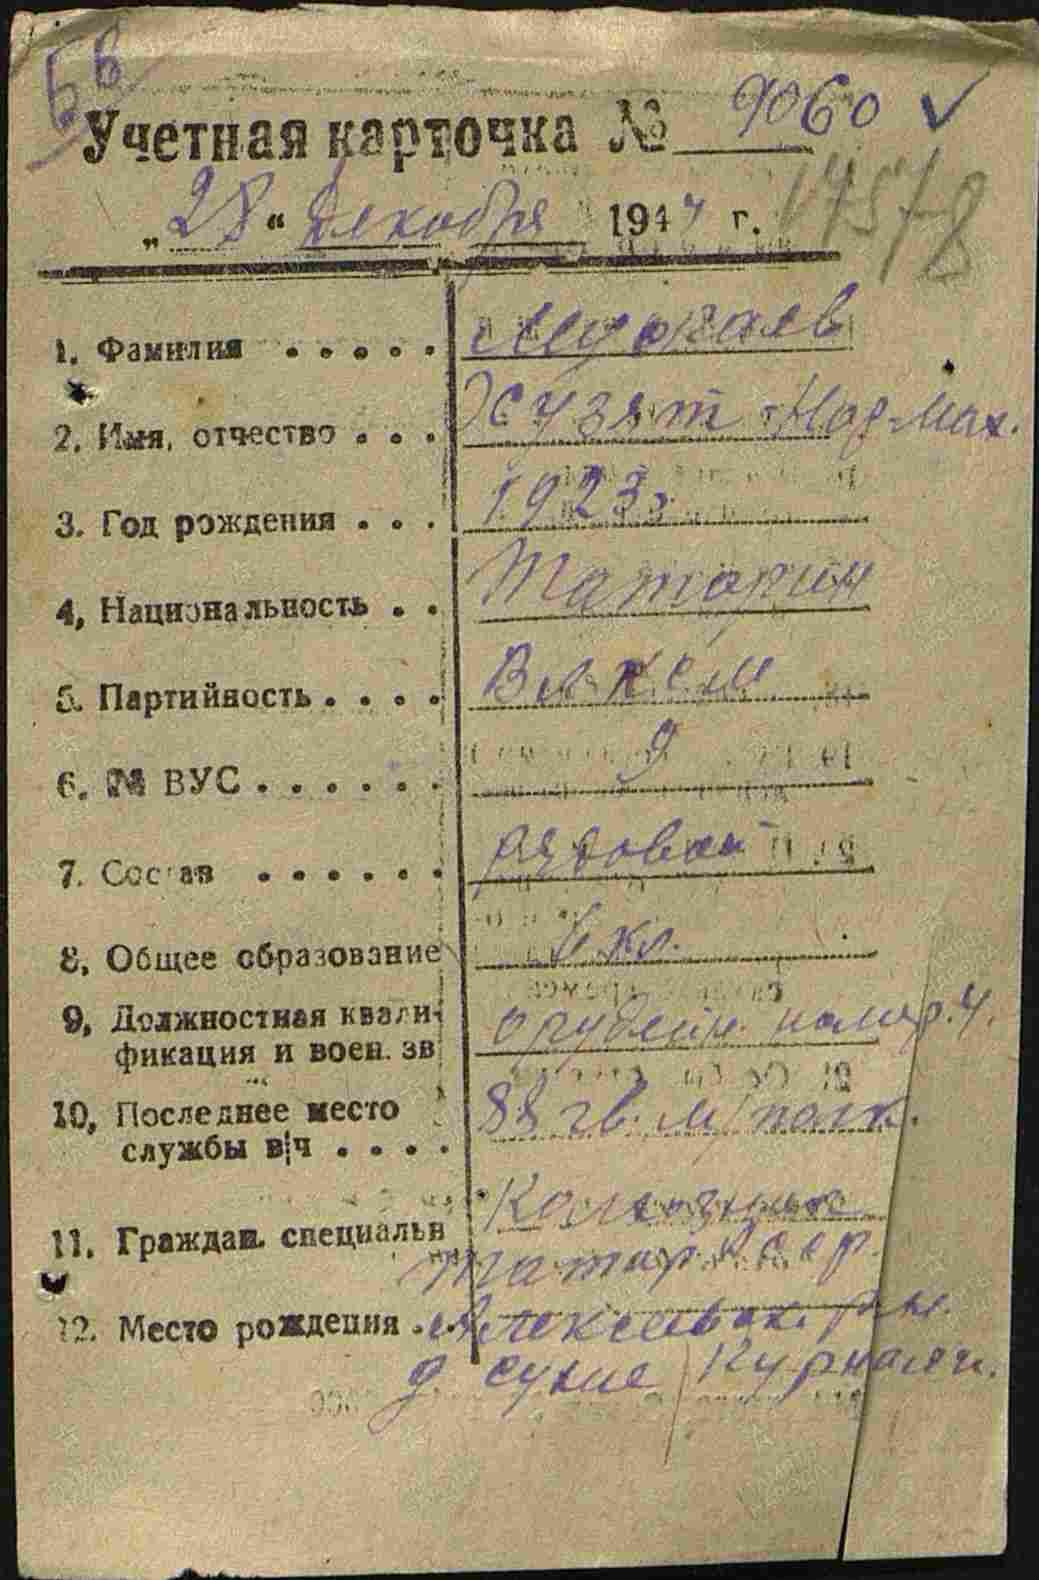 Бв
Учетная карточка № 9060
„28“ Декабря 1944 г. 17578
1. Фамилия . . . . .
2. Имя, отчество . . . Хузят Нормах.
3. Год рождения . . . 1923 г
4, Национальность . . Татарин
5. Партийность . . . . Влксм
6. № ВУС . . . . . . 9
7. Состав . . . . . . рядовой
8, Общее образование кл.
9, Должностная квали- орудейн. номер. 4.
фикация и воен. зв
10, Последнее место 88 гв. м/полк.
службы в|ч . . . .
11. Граждан. специальн Колхозник
Татар. ССР.
12. Место рождения . Алексеевск. р-н.
д Сухие Курнали.